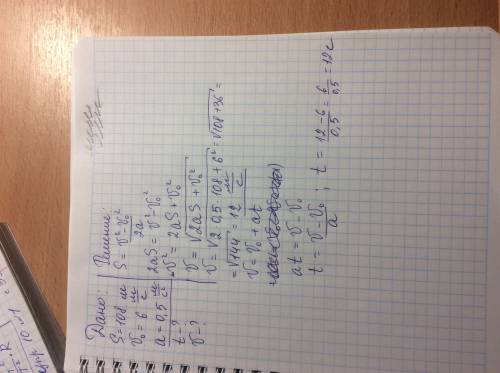 Дано:
S = 108 м
v₀ = 6 м/с
a = 0,5 м/с²
t - ?
v - ?
Решение:
S = (v² - v₀²)/2a
2aS = v² - v₀²
v² = 2aS + v₀²
v = √(2aS + v₀²)
v = √(2 · 0,5 · 108 + 6²) = √(108 + 36) =
= √144 = 12 м/с
v = v₀ + at
at = v - v₀
t = (v - v₀)/a ; t = (12 - 6)/0,5 = 6/0,5 = 12 с